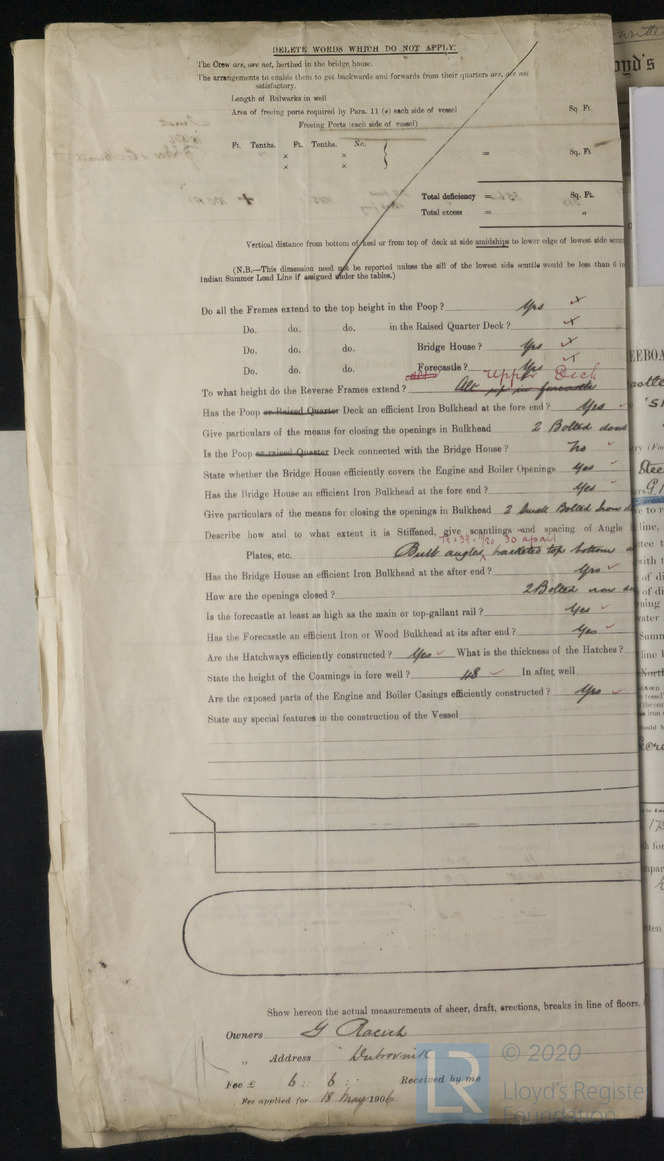 DELETE WORDS WHICH DO NOT APPLY:
The Crew are, are not, berthed in the bridge house.
The arrangements to enable them to get backwards and forwards from their quarters are, are not
satisfactory.
Length of Bulwarks in well
Area of freeing ports required by Para. 11 (e) each side of vessel Sq. Ft.
Freeing Ports (each side of vessel)
Ft. Tenths. Ft. Tenths. No.
× × = Sq. Ft.
× ×
Total deficiency = Sq. Ft.
Total excess = "
Vertical distance from bottom of keel or from top of deck at side amidships to lower edge of lowest side scutt
(N.B.—This dimension need not be reported unless the sill of the lowest side scuttle would be less than 6 in
Indian Summer Load Line if assigned under the tables.)
Do all the Frames extend to the top height in the Poop? Yes
Do. do. do. in the Raised Quarter Deck?
Do. do. do. Bridge House? Yes
Do. do. do. Forecastle? Yes
Upper Deck
To what height do the Reverse Frames extend? Alt up in forecastle
Has the Poop or Raised Quarter Deck an efficient Iron Bulkhead at the fore end? Yes
Give particulars of the means for closing the openings in Bulkhead 2 Bolted doors
Is the Poop or raised Quarter Deck connected with the Bridge House? No
State whether the Bridge House efficiently covers the Engine and Boiler Openings Yes
Has the Bridge House an efficient Iron Bulkhead at the fore end? Yes
Give particulars of the means for closing the openings in Bulkhead 2 Small Bolted Iron d
Describe how and to what extent it is Stiffened, give scantlings and spacing of Angle
30 apart
Plates, etc. Bulb angles bracketed top bottom
Has the Bridge House an efficient Iron Bulkhead at the after end? Yes
How are the openings closed? 2 Bolted iron do
Is the forecastle at least as high as the main or top-gallant rail? Yes
Has the Forecastle an efficient Iron or Wood Bulkhead at its after end? Yes
Are the Hatchways efficiently constructed? Yes What is the thickness of the Hatches?
State the height of the Coamings in fore well? 48 In after well
Are the exposed parts of the Engine and Boiler Casings efficiently constructed? Yes
State any special features in the construction of the Vessel
Show hereon the actual measurements of sheer, draft, erections, breaks in line of floors,
Owners G Racich
" Address Dubrovnik
Fee £ 6 : 6 : Received by me
Fee applied for 18 May 1906
LR © 2020
Lloyd's Registe
Foundation